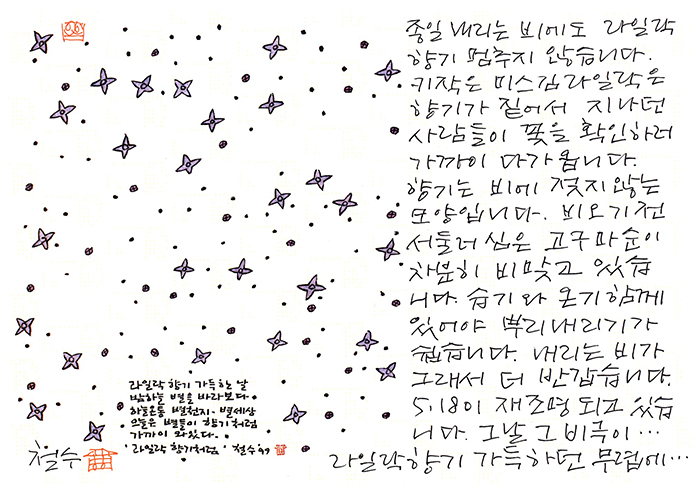 종일 내리는 비에도 라일락
향기 멈추지 않습니다.
키작은 미스김라일락은
향기가 짙어서 지나던
사람들이 꽃을 확인하러
가까이 다가옵니다.
향기는 비에 젖지않는
모양입니다. 비오기전
서둘러 심은 고구마순이
차분히 비맞고 있습
니다. 습기와 온기함께
있어야 뿌리내리기가
쉽습니다. 내리는 비가
그래서 더 반갑습니다.
5.18이 재조명 되고 있습
니다. 그날 그 비극이…
라일락향기 가득하던 무렵에…
라일락 향기 가득한 날
밤하늘 별을 바라보다.
하늘온통 별천지. 별세상
오늘은 별들이 향기처럼
가까이 와있다.
'라일락 향기처럼' 철수 99
철수